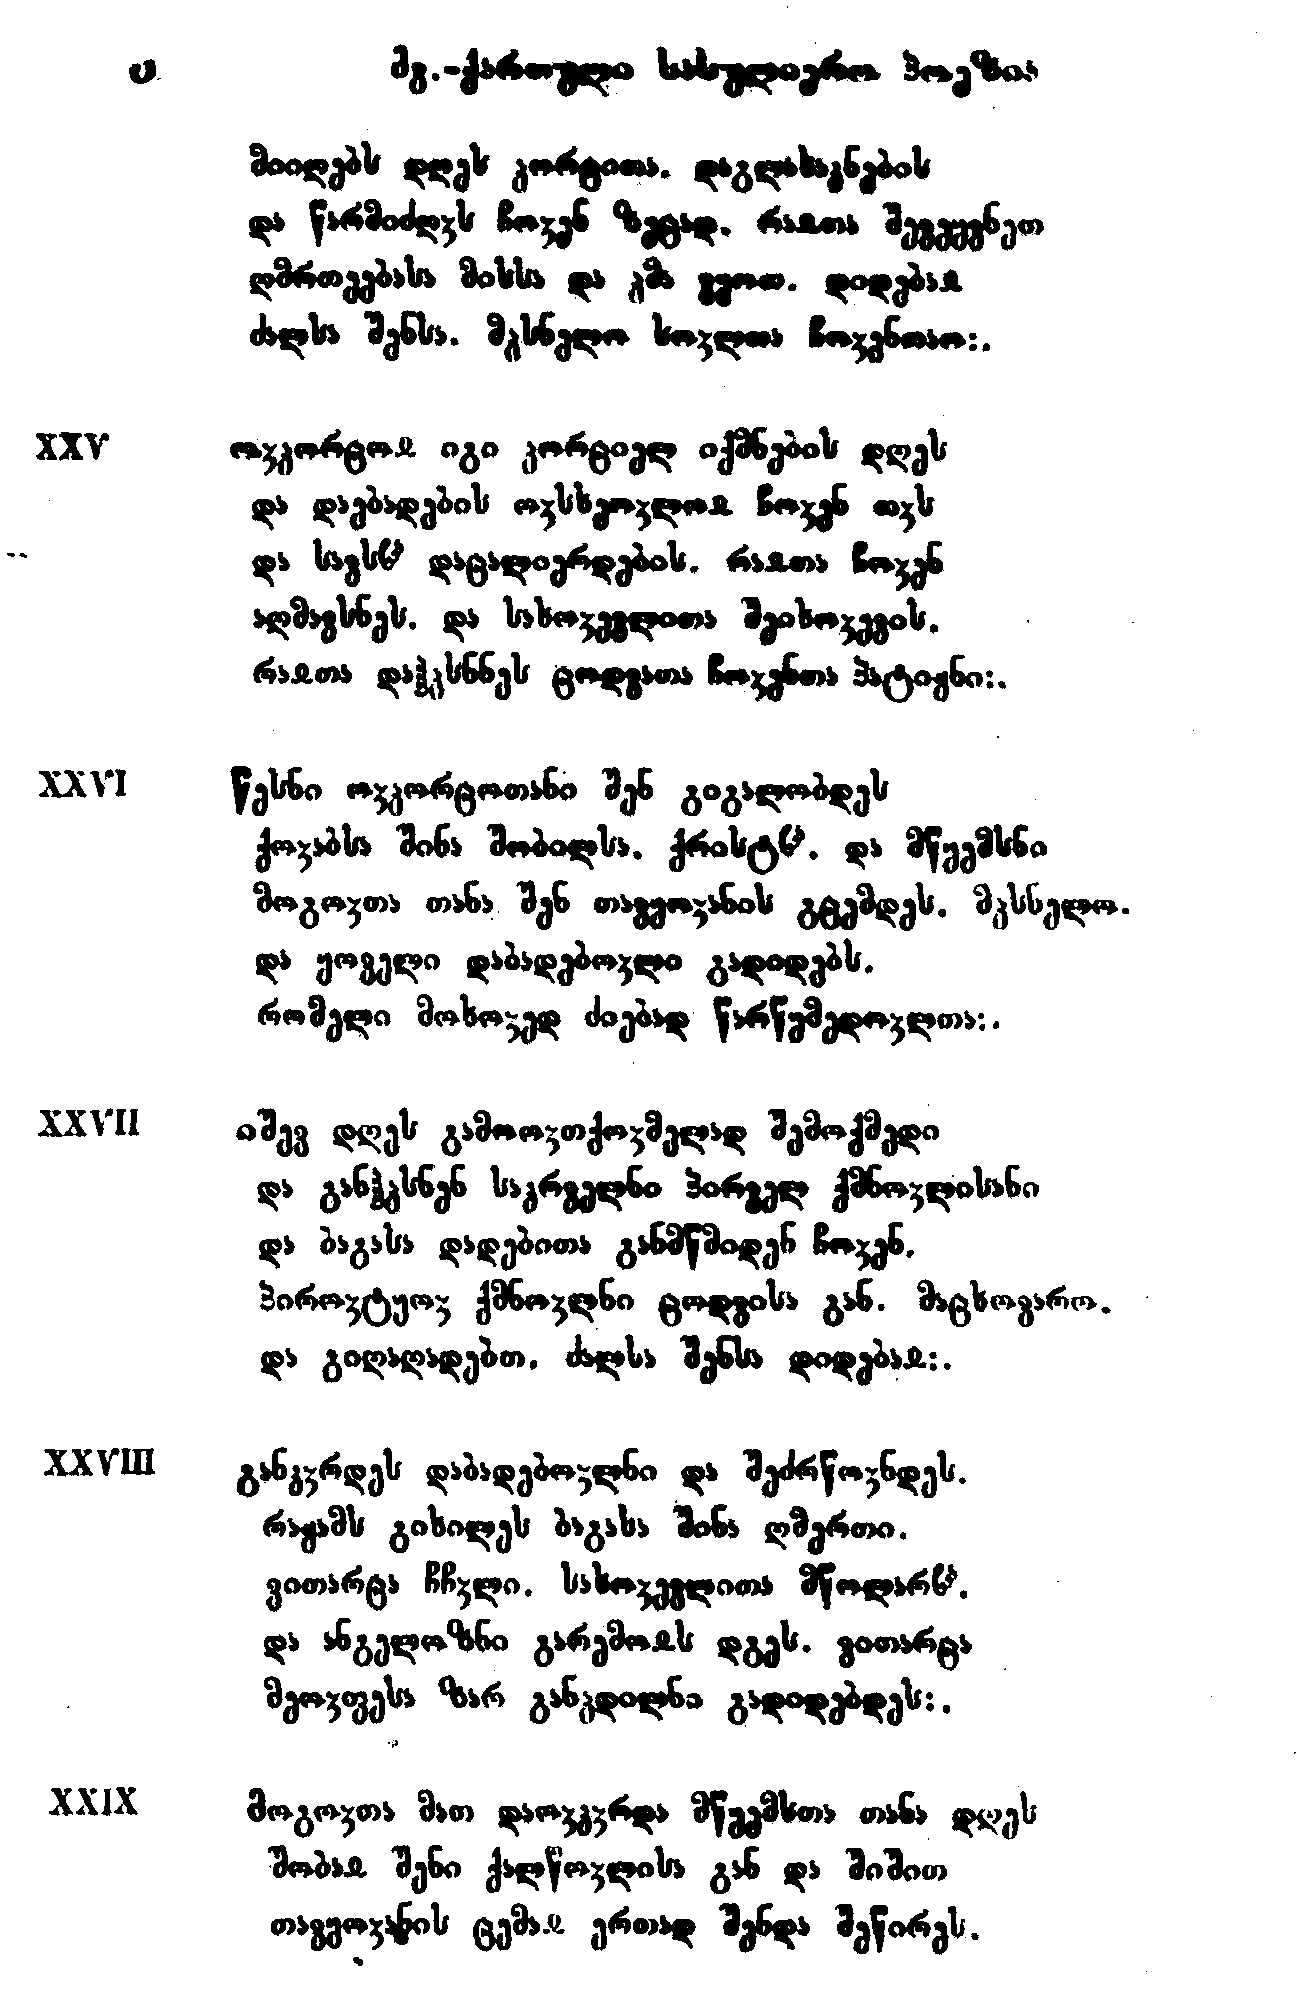 ც ძვ.-ქართული სასულიერო პოეზია
მიიღებს დღეს ჴორცითა. დაგლახაკნების
და წარმიძღჳს ჩოჳენ ზეცად. რაჲთა შევეყვნეთ
ღმრთეებასა მისსა და ჴმა ვყოთ. დიდებაჲ
ძალსა შენსა. მჴსნელო სოჳლთა ჩოჳენთაო:.
XXV ოჳჴორცოჲ იგი ჴორციელ იქმნების დღეს
და დაებადების ოჳსხეოჳლოჲ ჩოჳენ თჳს
და სავსჱ დაცალიერდების. რაჲთა ჩოჳენ
აღმავსნეს. და სახოჳევლითა შეიხოჳევის.
რაჲთა დაჰჴსნნეს ცოდვათა ჩოჳენთა პატიჟნი:.
XXVI წესნი ოჳჴორცოთანი შენ გიგალობდეს
ქოჳაბსა შინა შობილსა. ქრისტჱ. და მწყემსნი
მოგოჳთა თანა შენ თაყოჳანის გცემდეს. მჴსნელო.
და ყოველი დაბადებოჳლი გადიდებს.
რომელი მოხოჳედ ძიებად წარწყმედოჳლთა:.
XXVII იშევ დღეს გამოოჳთქოჳმელად შემოქმედი
და განჰჴსნენ საკრველნი პირველ ქმნოჳლისანი
და ბაგასა დადებითა განმწმიდენ ჩოჳენ.
პიროჳტყოჳ ქმნოჳლნი ცოდვისა გან. მაცხოვარო.
და გიღაღადებთ. ძალსა შენსა დიდებაჲ:.
XXVIII განკჳრდეს დაბადებოჳლნი და შეძრწოჳნდეს.
რაჟამს გიხილეს ბაგასა შინა ღმერთი.
ვითარცა ჩჩჳლი. სახოჳევლითა მწოლარჱ.
და ანგელოზნი გარემოჲს დგეს. ვითარცა
მეოჳფესა ზარ განჴდილნი გადიდებდეს:.
XXIX მოგოჳთა მათ დაოჳკჳრდა მწყემსთა თანა დღეს
შობაჲ შენი ქალწოჳლისა გან და შიშით
თაყოჳანის ცემაჲ ერთად შენდა შეწირეს.